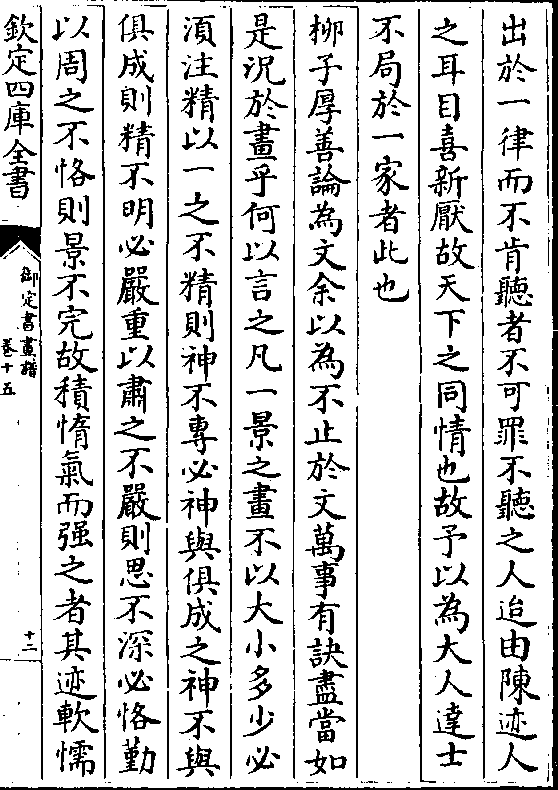 出於一律而不肯聽者不可罪不聽之人迨由陳迹人
之耳目喜新厭故天下之同情也故予以為大人達士
不局於一家者此也
柳子厚善論為文余以為不止於文萬事有訣盡當如
是況於畫乎何以言之凡一景之畫不以大小多少必
須注精以一之不精則神不專必神與俱成之神不與
俱成則精不明必嚴重以肅之不嚴則思不深必恪勤
以周之不恪則景不完故積惰氣而强之者其迹軟懦
欽定四庫全書
御定書畫譜
卷十五
十二